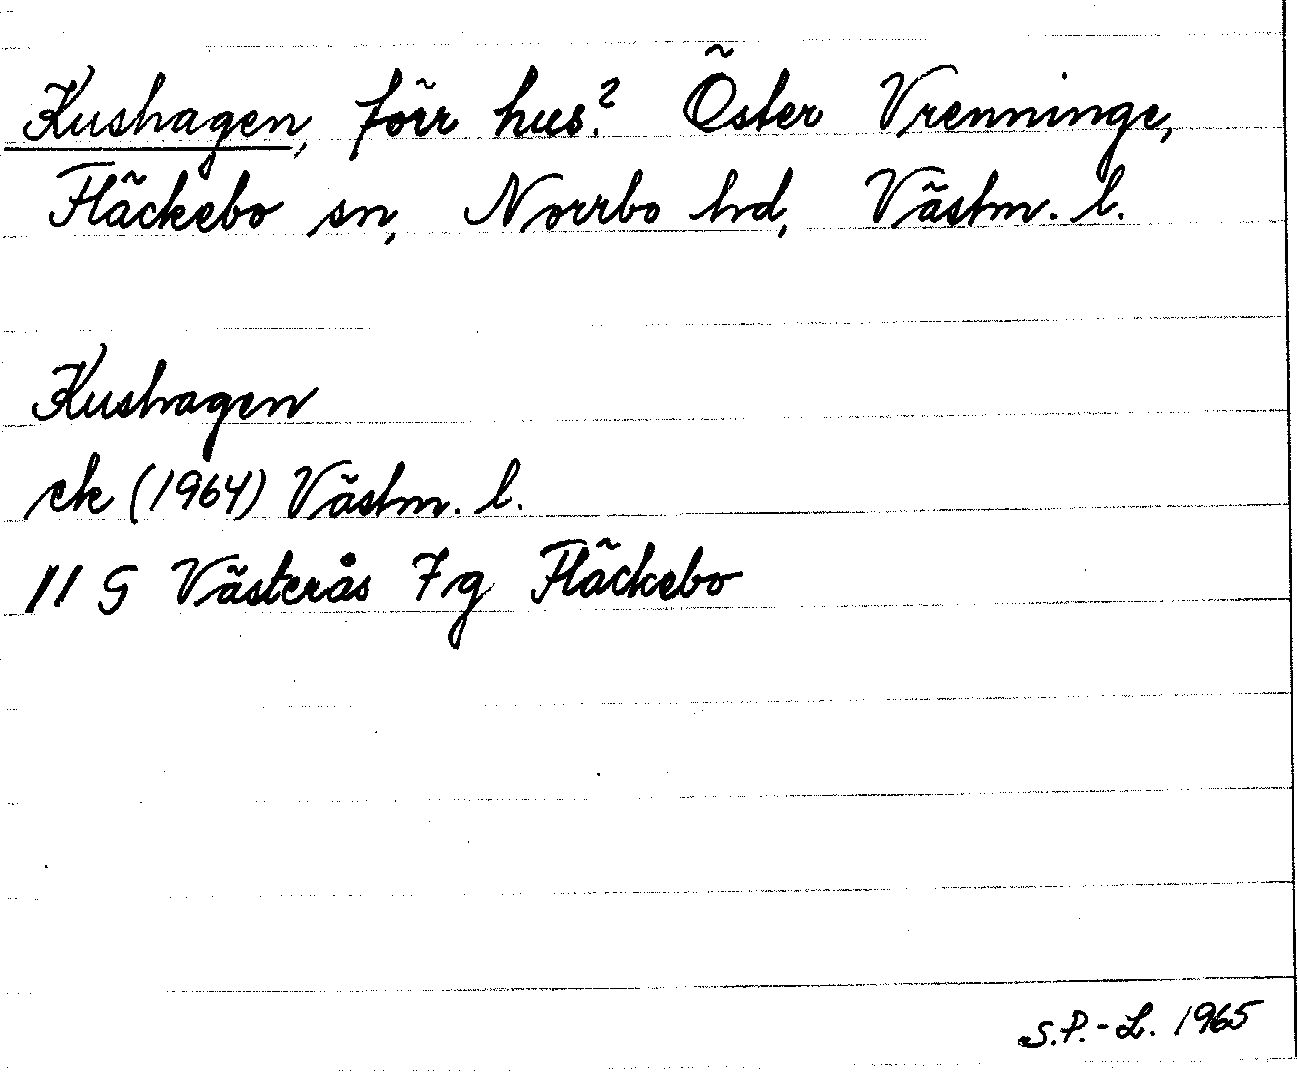 Kushagen, förr hus? Öster Vrenninge,
Fläckebo sn, Norrbo hd, Västm. l.
Kushagen
ek (1964) Västm. l.
11 G Västerås 7g Fläckebo
S.P.-L. 1965